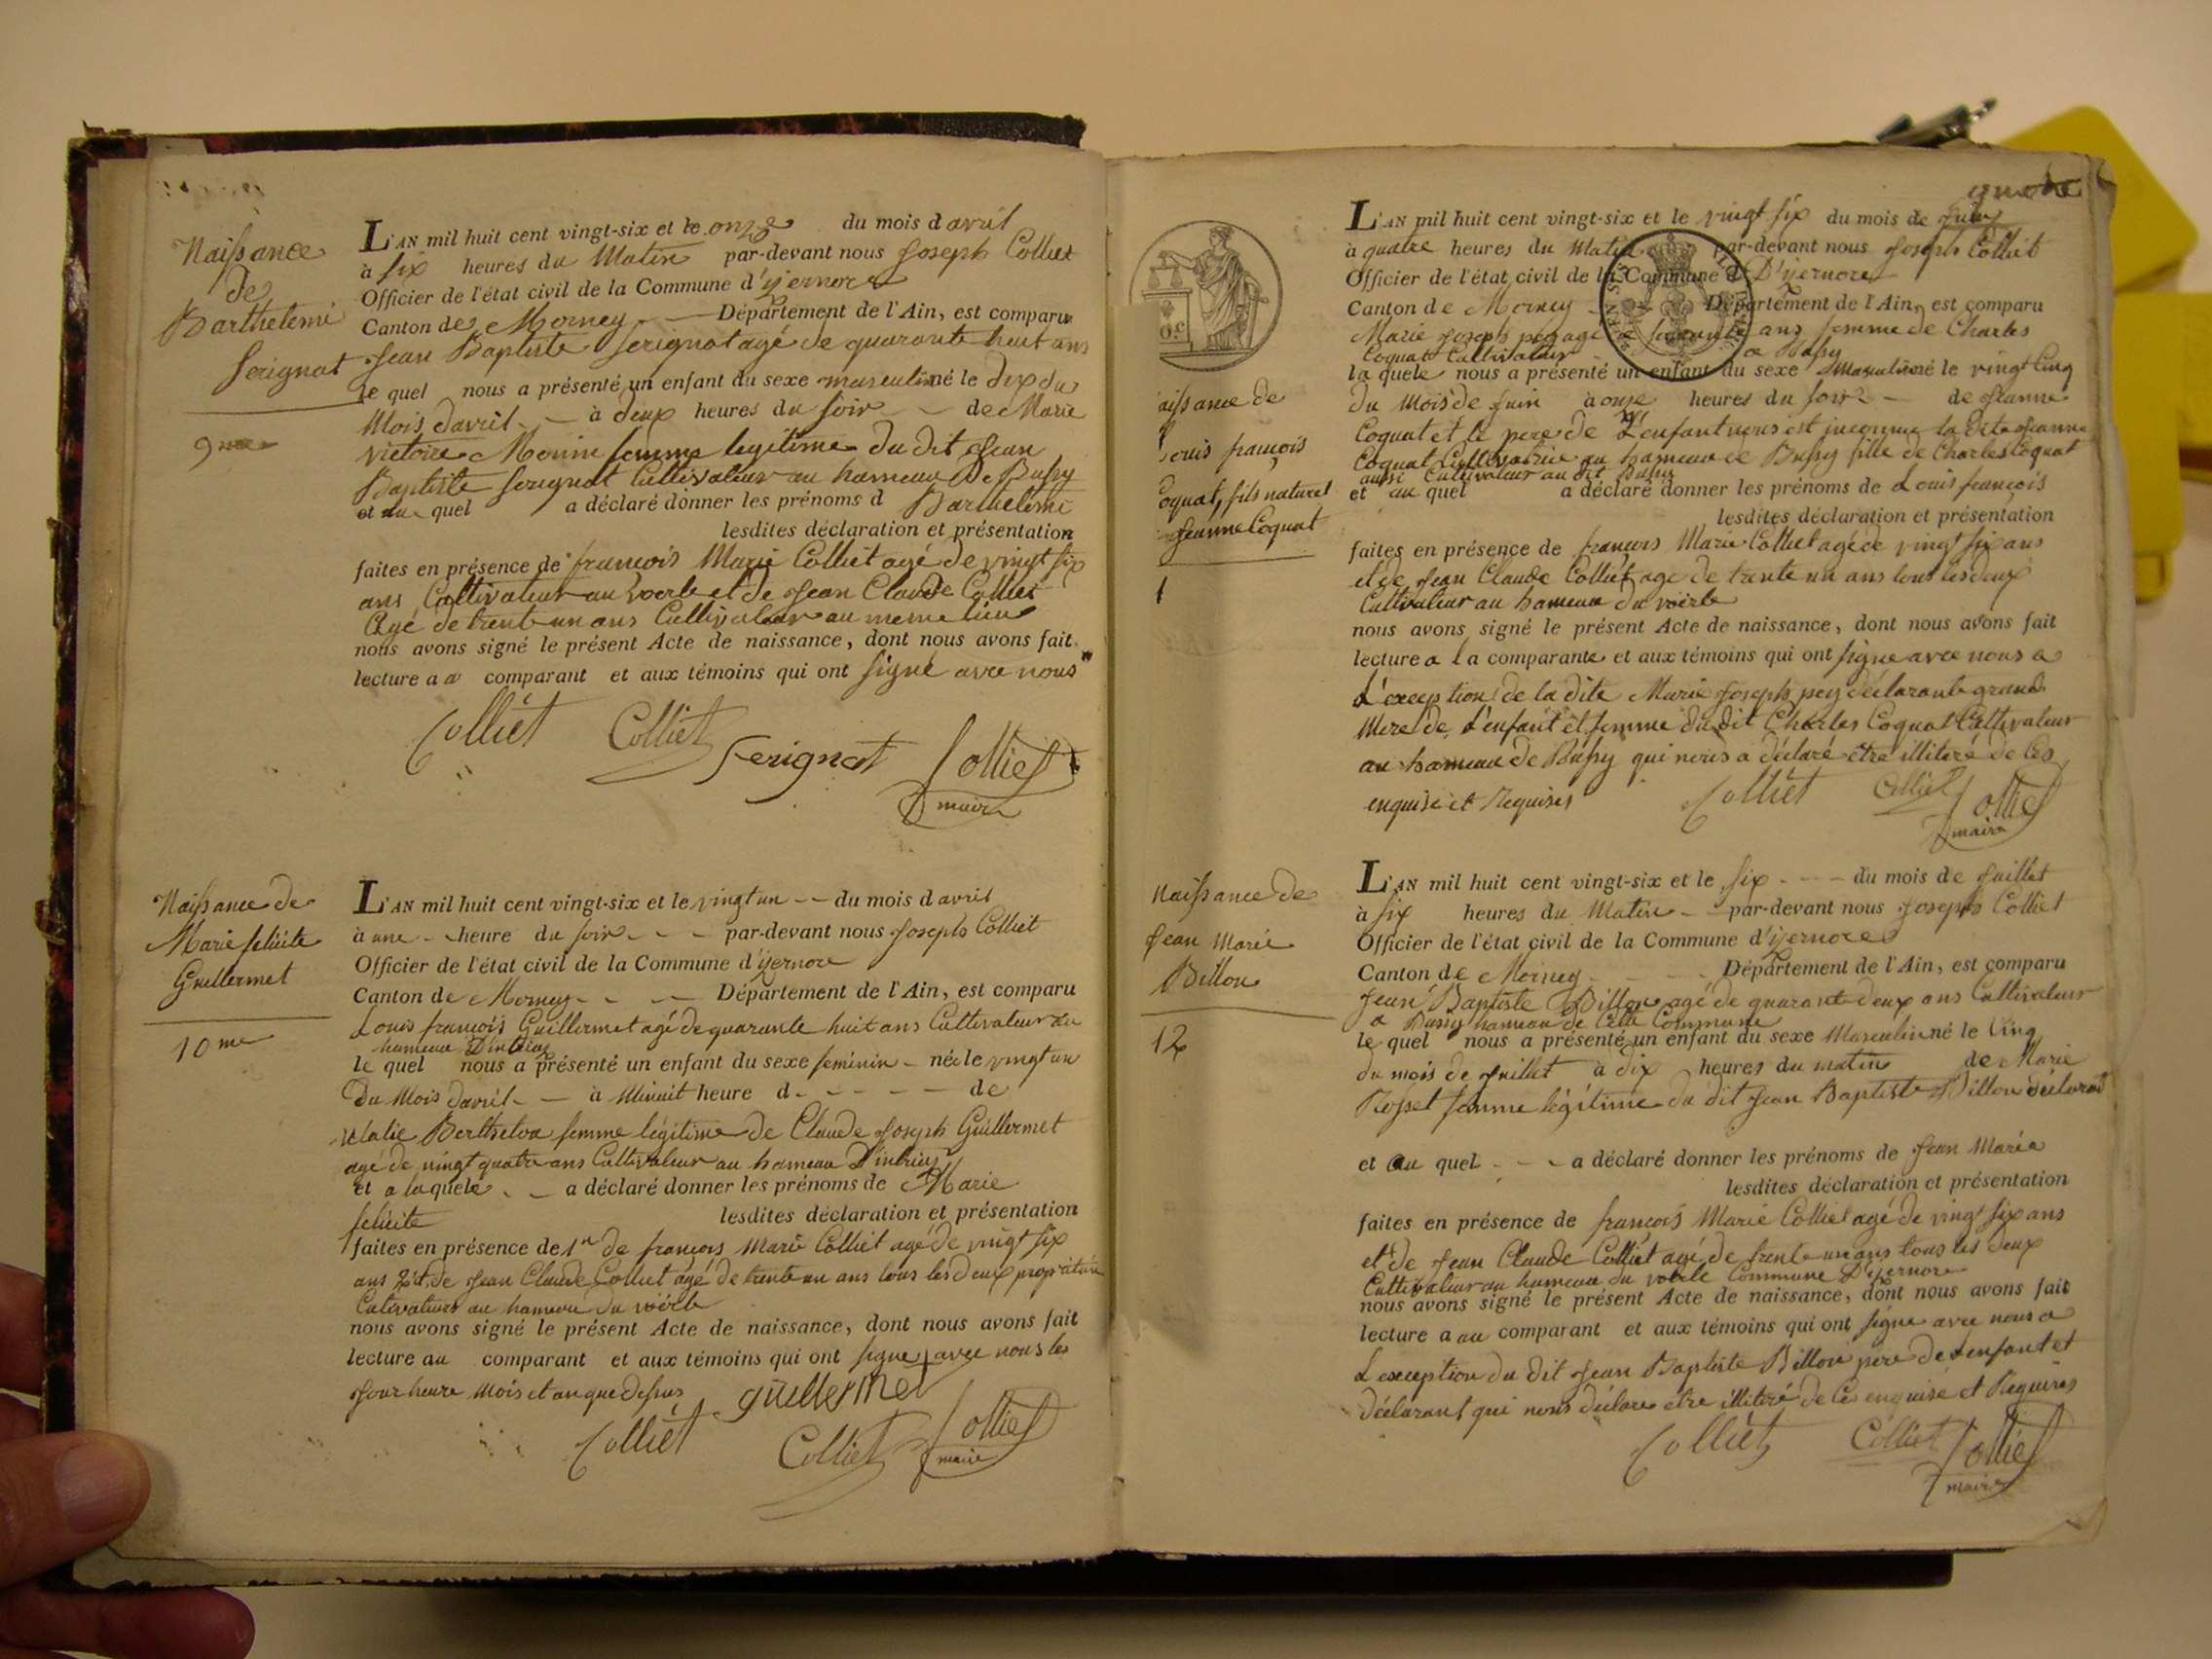 Naissance
de
Barthelemi
Serignat
9me
L'AN mil huit cent vingt-six et le onze du mois d avril
à six heures du Matin par-devant nous Joseph Colliet
Officier de l'état civil de la Commune d'yzernore
Canton de Mornay Département de l'Ain, est comparu
Jean Baptiste Serignat agé de quarante huit ans
le quel nous a présenté un enfant du sexe masculin né le dix du
Mois davril à deux heures du soir de Marie
victoire Monin femme legitime du dit Jean
Baptiste Serignat Cultivateur au hameau De Bussy
et au quel a déclaré donner les prénoms d Barthelemi
lesdites déclaration et présentation
faites en présence de françois Marie Colliet agé de vingt six
ans Cultivateur au voerle et de Jean Claude Colliet
Agé de trente un ans Cultivateur au meme lieu
nous avons signé le présent Acte de naissance, dont nous avons fait
lecture a a comparant et aux témoins qui ont signé avec nous
Colliet Colliet Serignat Colliet
maire
Naissance de
Marie felicite
Guillermet
10me
L'AN mil huit cent vingt-six et le vingt un du mois d avril
à une heure du soir par-devant nous Joseph Colliet
Officier de l'état civil de la Commune d'yzernore
Canton de Mornay Département de l'Ain, est comparu
Louis françois Guillermet agé de quarante huit ans Cultivateur au
hameau D'intriaz
le quel nous a présenté un enfant du sexe feminin née le vingt un
Du Mois davril à Minuit heure d de
Berthelon femme légitime de Claude Joseph Guillermet
agé de vingt quatre ans Cultivateur au hameau D'intriaz
et a laquele a déclaré donner les prénoms de Marie
felicite lesdites déclaration et présentation
faites en présence de 1er de françois Marie Colliet agé de vingt six
ans 2e et de Jean Claude Colliet agé de trente un ans tous les deux propriétaire
Cultivateurs au hameau du voerle
nous avons signé le présent Acte de naissance, dont nous avons fait
lecture au comparant et aux témoins qui ont signe avec nous les
Jour heure Mois et an que dessus Guillermet
Colliet Colliet Colliet
maire
L'AN mil huit cent vingt-six et le vingt six du mois de
à quatre heures du Matin par-devant nous Joseph Colliet
Officier de l'état civil de la Commune d D'yzernore
Canton de Mornay Département de l'Ain, est comparu
Marie Joseph pey agé de ans femme de Charles
Coquat Cultivateur a Bussy
la quele nous a présenté un enfant du sexe Masculin né le vingt Cinq
du Mois de Juin à onze heures du soir de Jeanne
Coquat et le pere de L'enfant nous est inconnu la dite Jeanne
Coquat Cultivatrice au hameau de Bussy fille de Charles Coquat
aussi Cultivateur au dit Bussy
et au quel a déclaré donner les prénoms de Louis françois
lesdites déclaration et présentation
faites en présence de françois Marie Colliet agé de vingt six ans
et de Jean Claude Colliet age de trente un ans tous les deux
Cultivateur au hameau du voerle
nous avons signé le présent Acte de naissance, dont nous avons fait
lecture a la comparante et aux témoins qui ont signe avec nous a
L'exception de la dite Marie Joseph pey déclarante grand
Mere de L'enfant et femme du dit Charles Coquat Cultivateur
au hameau de Bussy qui nous a déclaré être illiteré de Ces
enquise et Requises Colliet Colliet Colliet
maire
aissance de
Louis françois
Coquat, fils naturel
Jeanne Coquat
1
Naissance de
Jean Marie
Billon
12
L'AN mil huit cent vingt-six et le six du mois de Juillet
à six heures du Matin par-devant nous Joseph Colliet
Officier de l'état civil de la Commune d'yzernore
Canton de Mornay Département de l'Ain, est comparu
Jean Baptiste Billon agé de quarante deux ans Cultivateur
a Bussy hameau de Cette Commune
le quel nous a présenté un enfant du sexe Masculin né le Cinq
du mois de Juillet à dix heures du matin de Marie
Rosset femme légitime du dit Jean Baptiste Billon déclarant
et au quel a déclaré donner les prénoms de Jean Marie
lesdites déclaration et présentation
faites en présence de françois Marie Colliet agé de vingt six ans
et de Jean Claude Colliet agé de trente un ans tous les deux
Cultivateur au hameau du voerle Commune D'yzernore
nous avons signé le présent Acte de naissance, dont nous avons fait
lecture a au comparant et aux témoins qui ont signe avec nous a
L exception du dit Jean Baptiste Billon pere de L enfant et
déclarant qui nous déclare etre illiteré de Ces enquise et Requises
Colliet Colliet Colliet
maire